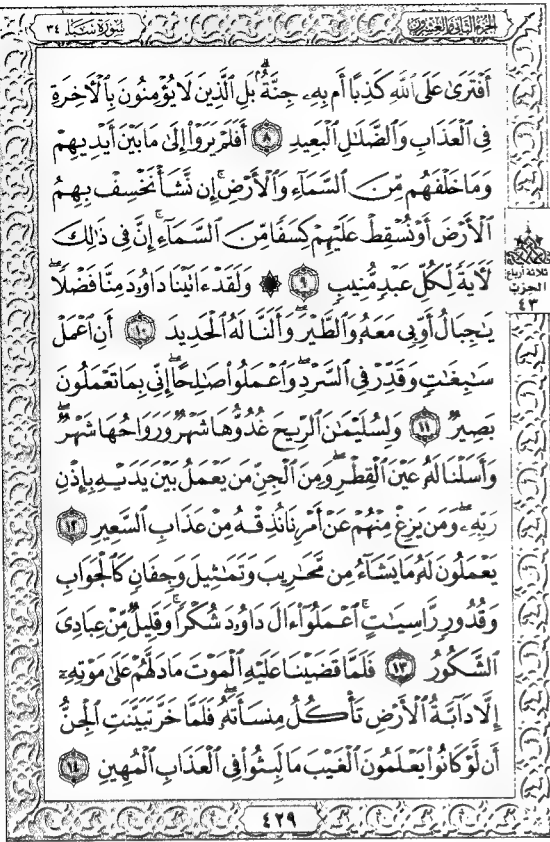 سُورَةُ سَبَإٍ ٣٤
الجُزْءُ الثَّانِي وَالعِشْرُونَ
أَفْتَرَىٰ عَلَى ٱللَّهِ كَذِبًا أَم بِهِۦ جِنَّةُۢ ۗ بَلِ ٱلَّذِينَ لَا يُؤْمِنُونَ بِٱلْأَخِرَةِ
فِى ٱلْعَذَابِ وَٱلضَّلَٰلِ ٱلْبَعِيدِ ٨ أَفَلَمْ يَرَوْا۟ إِلَىٰ مَا بَيْنَ أَيْدِيهِمْ
وَمَا خَلْفَهُم مِّنَ ٱلسَّمَآءِ وَٱلْأَرْضِ ۚ إِن نَّشَأْ نَخْسِفْ بِهِمُ
ٱلْأَرْضَ أَوْ نُسْقِطْ عَلَيْهِمْ كِسَفًا مِّنَ ٱلسَّمَآءِ ۚ إِنَّ فِى ذَٰلِكَ
لَءَايَةً لِّكُلِّ عَبْدٍ مُّنِيبٍ ٩ ۞ وَلَقَدْ ءَاتَيْنَا دَاوُۥدَ مِنَّا فَضْلًا ۖ
يَٰجِبَالُ أَوِّبِى مَعَهُۥ وَٱلطَّيْرَ ۖ وَأَلَنَّا لَهُ ٱلْحَدِيدَ ١٠ أَنِ ٱعْمَلْ
سَٰبِغَٰتٍ وَقَدِّرْ فِى ٱلسَّرْدِ ۖ وَٱعْمَلُوا۟ صَٰلِحًا ۖ إِنِّى بِمَا تَعْمَلُونَ
بَصِيرٌ ١١ وَلِسُلَيْمَٰنَ ٱلرِّيحَ غُدُوُّهَا شَهْرٌ وَرَوَاحُهَا شَهْرٌ ۖ
وَأَسَلْنَا لَهُۥ عَيْنَ ٱلْقِطْرِ ۖ وَمِنَ ٱلْجِنِّ مَن يَعْمَلُ بَيْنَ يَدَيْهِ بِإِذْنِ
رَبِّهِۦ ۖ وَمَن يَزِغْ مِنْهُمْ عَنْ أَمْرِنَا نُذِقْهُ مِنْ عَذَابِ ٱلسَّعِيرِ ١٢
يَعْمَلُونَ لَهُۥ مَا يَشَآءُ مِن مَّحَٰرِيبَ وَتَمَٰثِيلَ وَجِفَانٍ كَٱلْجَوَابِ
وَقُدُورٍ رَّاسِيَٰتٍ ۚ ٱعْمَلُوٓا۟ ءَالَ دَاوُۥدَ شُكْرًا ۚ وَقَلِيلٌ مِّنْ عِبَادِىَ
ٱلشَّكُورُ ١٣ فَلَمَّا قَضَيْنَا عَلَيْهِ ٱلْمَوْتَ مَا دَلَّهُمْ عَلَىٰ مَوْتِهِۦٓ
إِلَّا دَآبَّةُ ٱلْأَرْضِ تَأْكُلُ مِنسَأَتَهُۥ ۖ فَلَمَّا خَرَّ تَبَيَّنَتِ ٱلْجِنُّ
أَن لَّوْ كَانُوا۟ يَعْلَمُونَ ٱلْغَيْبَ مَا لَبِثُوا۟ فِى ٱلْعَذَابِ ٱلْمُهِينِ ١٤
ثلاثة أرباع
الحزب
٤٣
٤٢٩